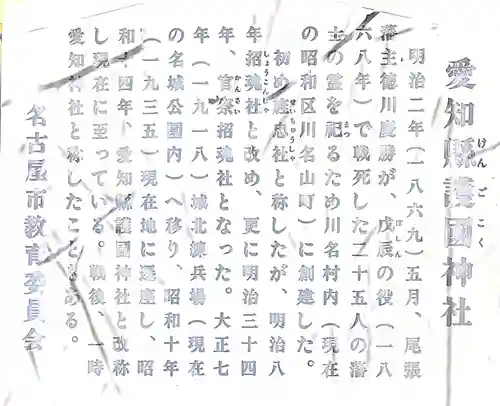 愛知縣護國神社
けんごこく
明治二年(一八六九)五月、尾張
藩主徳川慶勝が、戊辰の役(一八
ぼしん
六八年)で戦死した二十五人の藩
士の霊を祀るため川名村内(現在
まつ
の昭和区川名山町)に創建した。
初め旌忠社と称したが、明治八
せいちゅうしゃ
年招魂社と改め、更に明治三十四
しょうこんしゃ
年、官祭招魂社となった。大正七
かんさい
年(一九一八)城北練兵場(現在
の名城公園内)へ移り、昭和十年
(一九三五)現在地に遷座し、昭
和十四年、愛知縣護國神社と改称
し現在に至っている。戦後、一時
愛知神社と称したこともある。
名古屋市教育委員会